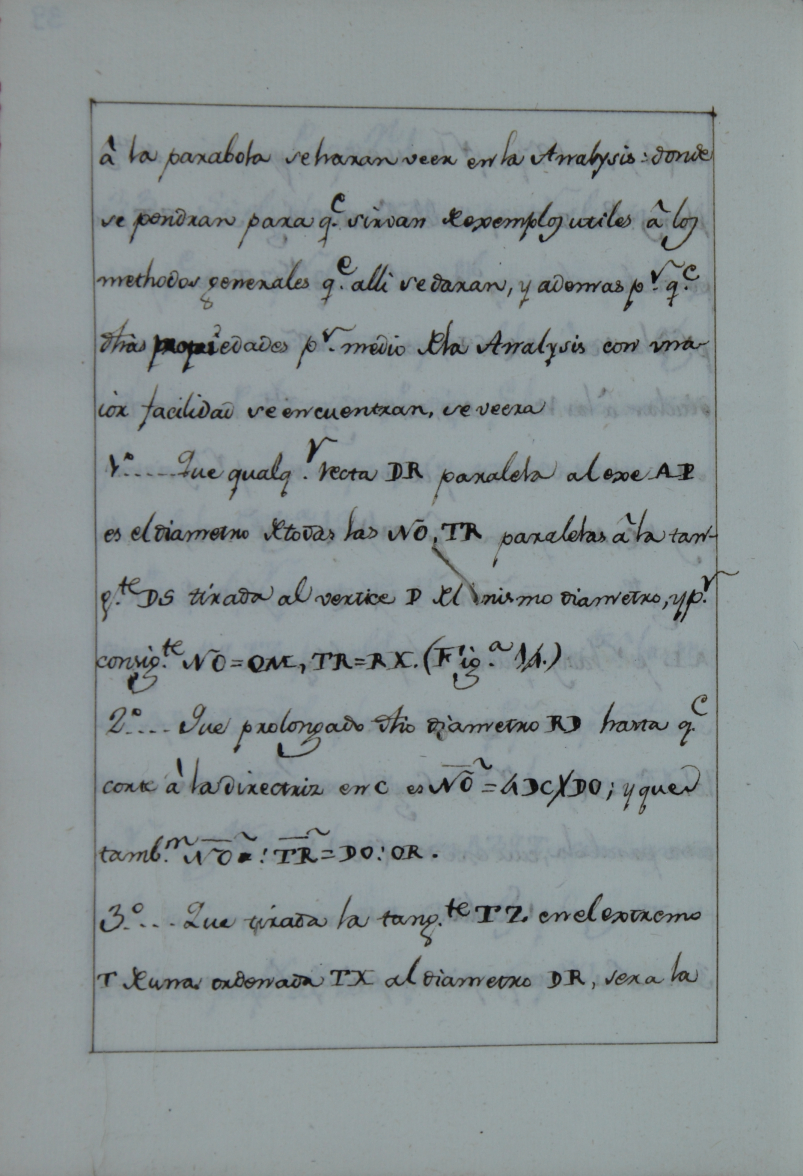 â la parabola se haran veer en la Analysis: donde
se pondran para q.e sirvan de exemplos utiles â los
methodos generales q.e alli se daran, y ademas p.r q.e
dhâs propiedades p.r medio de la Analysis con ma-
ior facilidad se encuentran, se veera
1.º.... Que qualq.r recta DR paralela al exe AP
es el diametro de todas las NO, TR paralelas â la tan-
g.te DS tirada al vertice D del mismo diametro, y p.r
consig.te NO=OM, TR=RX. (Fig.a 14.)
2.º.... Que prolongado dho diametro RD hasta q.e
corte â la directriz en C es NO² = 4DC×DO; y que
tamb.n NO² : TR² = DO : OR.
3.º.... Que tirada la tang.te TZ en el extremo
T de una ordenada TX al diametro DR, sera la